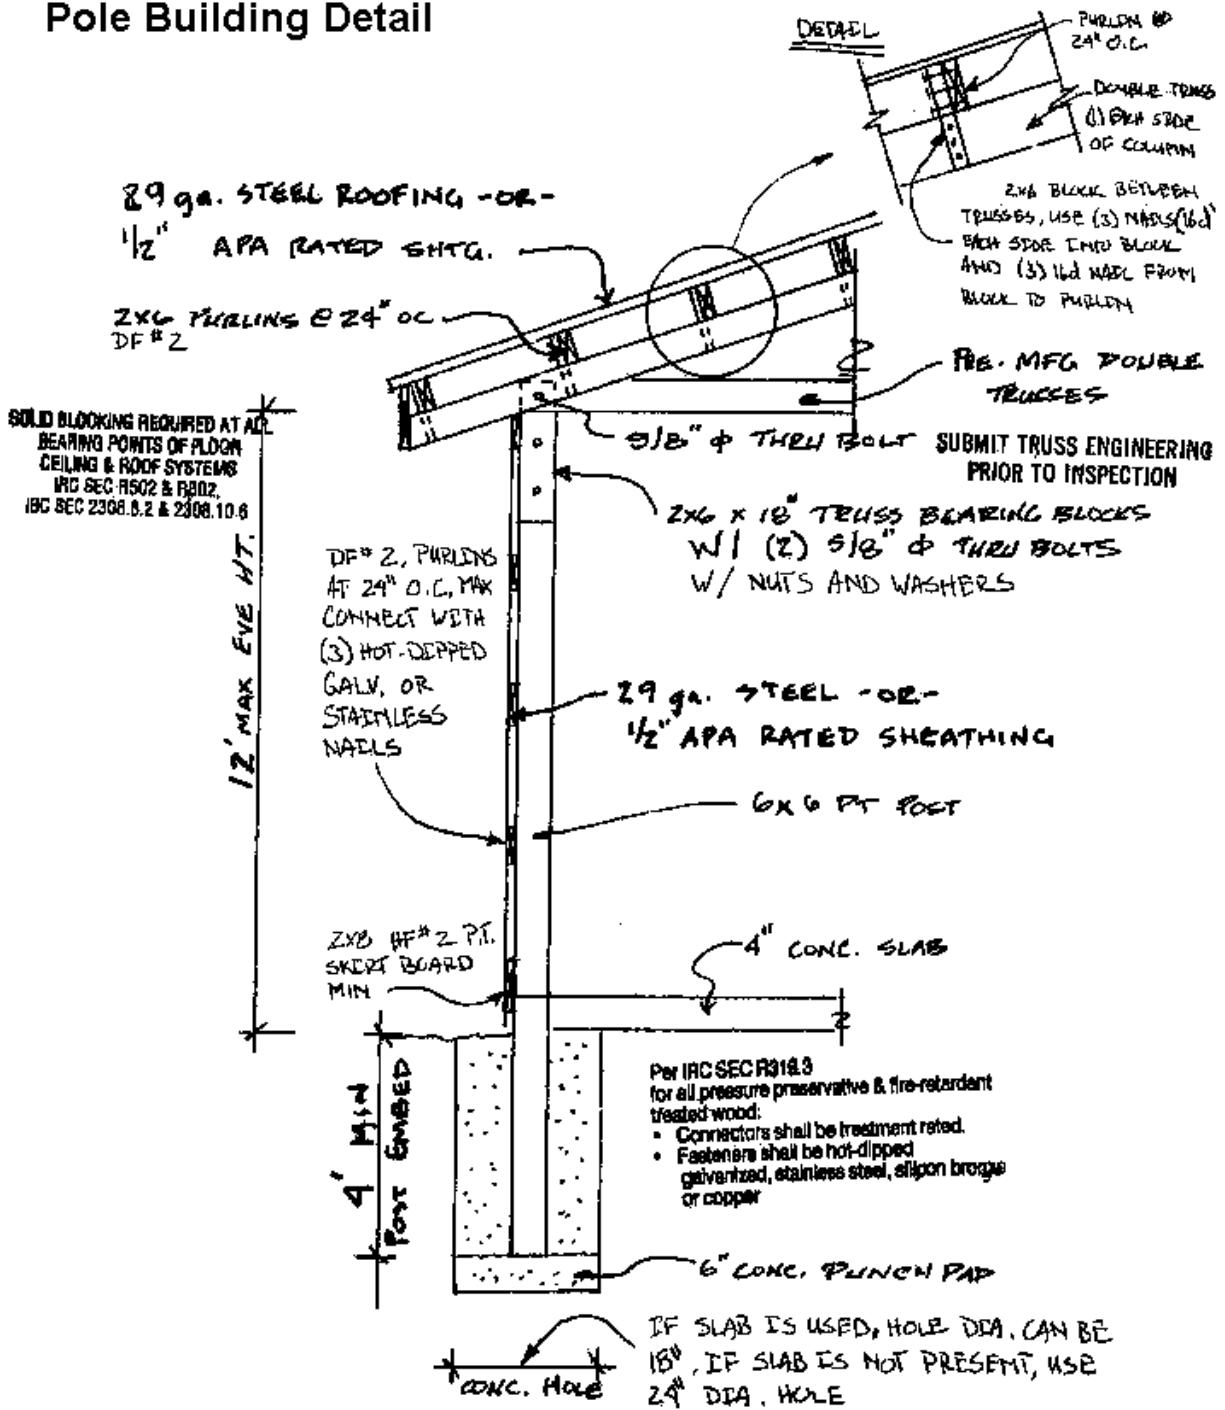 Pole Building Detail
DETAIL
PURLIN @
24" O.C.
DOUBLE TRUSS
(1) EACH SIDE
OF COLUMN
2X6 BLOCK BETWEEN
TRUSSES, USE (3) NAILS (16d)
EACH SIDE INTO BLOCK
AND (3) 16d NAIL FROM
BLOCK TO PURLIN
29 ga. STEEL ROOFING -OR-
1/2" APA RATED SHTG.
2X6 PURLINS @ 24" OC
DF #2
PRE. MFG DOUBLE
TRUSSES
SOLID BLOCKING REQUIRED AT ALL
BEARING POINTS OF FLOOR
CEILING & ROOF SYSTEMS
IRC SEC R502 & R802,
IBC SEC 2308.8.2 & 2308.10.6
5/8" φ THRU BOLT
SUBMIT TRUSS ENGINEERING
PRIOR TO INSPECTION
2X6 X 18" TRUSS BEARING BLOCKS
W/ (2) 5/8" φ THRU BOLTS
W/ NUTS AND WASHERS
12' MAX EVE HT.
DF #2, PURLINS
AT 24" O.C, MAX
CONNECT WITH
(3) HOT-DIPPED
GALV, OR
STAINLESS
NAILS
29 ga. STEEL -OR-
1/2" APA RATED SHEATHING
6X6 PT POST
2X8 HF #2 P.T.
SKIRT BOARD
MIN
4" CONC. SLAB
4' MIN
POST EMBED
Per IRC SEC R319.3
for all pressure preservative & fire-retardant
treated wood:
• Connectors shall be treatment rated.
• Fasteners shall be hot-dipped
galvanized, stainless steel, silicon bronze
or copper
6" CONC. PUNCH PAD
CONC. HOLE
IF SLAB IS USED, HOLE DIA. CAN BE
18". IF SLAB IS NOT PRESENT, USE
24" DIA. HOLE